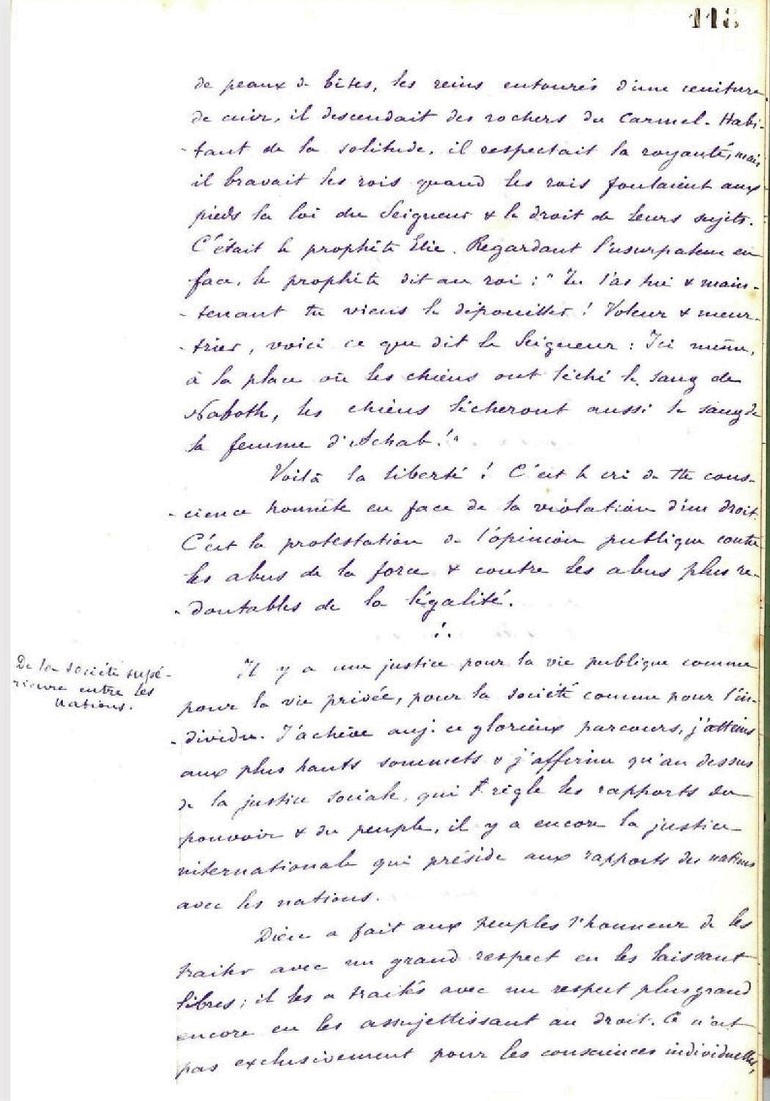 118
de peaux de bêtes, les reins entourés d'une ceinture
de cuir, il descendait des rochers du Carmel. Habi-
-tant de la solitude, il respectait la royauté, mais
il bravait les rois quand les rois foulaient aux
pieds la loi du Seigneur & le droit de leurs sujets.
C'était le prophète Elie. Regardant l'usurpateur en
face, le prophète dit au roi : "Tu l'as tué & main-
-tenant tu viens le dépouiller ! Voleur & meur-
-trier, voici ce que dit le Seigneur : Ici même,
à la place où les chiens ont léché le sang de
Naboth, les chiens lécheront aussi le sang de
la femme d'Achab !"
Voilà la liberté ! C'est le cri de tte cons-
-cience honnête en face de la violation d'un droit.
C'est la protestation de l'opinion publique contre
les abus de la force & contre les abus plus re-
-doutables de la légalité.
De la société supé-
rieure entre les
nations.
Il y a une justice pour la vie publique comme
pour la vie privée, pour la société comme pour l'in-
-dividu. J'achève auj. ce glorieux parcours, j'atteins
aux plus hauts sommets & j'affirme qu'au dessus
de la justice sociale, qui règle les rapports du
pouvoir & du peuple, il y a encore la justice
internationale qui préside aux rapports des nations
avec les nations.
Dieu a fait aux peuples l'honneur de les
traiter avec un grand respect en les laissant
libres ; il les a traités avec un respect plus grand
encore en les assujettissant au droit. Ce n'est
pas exclusivement pour les consciences individuelles,